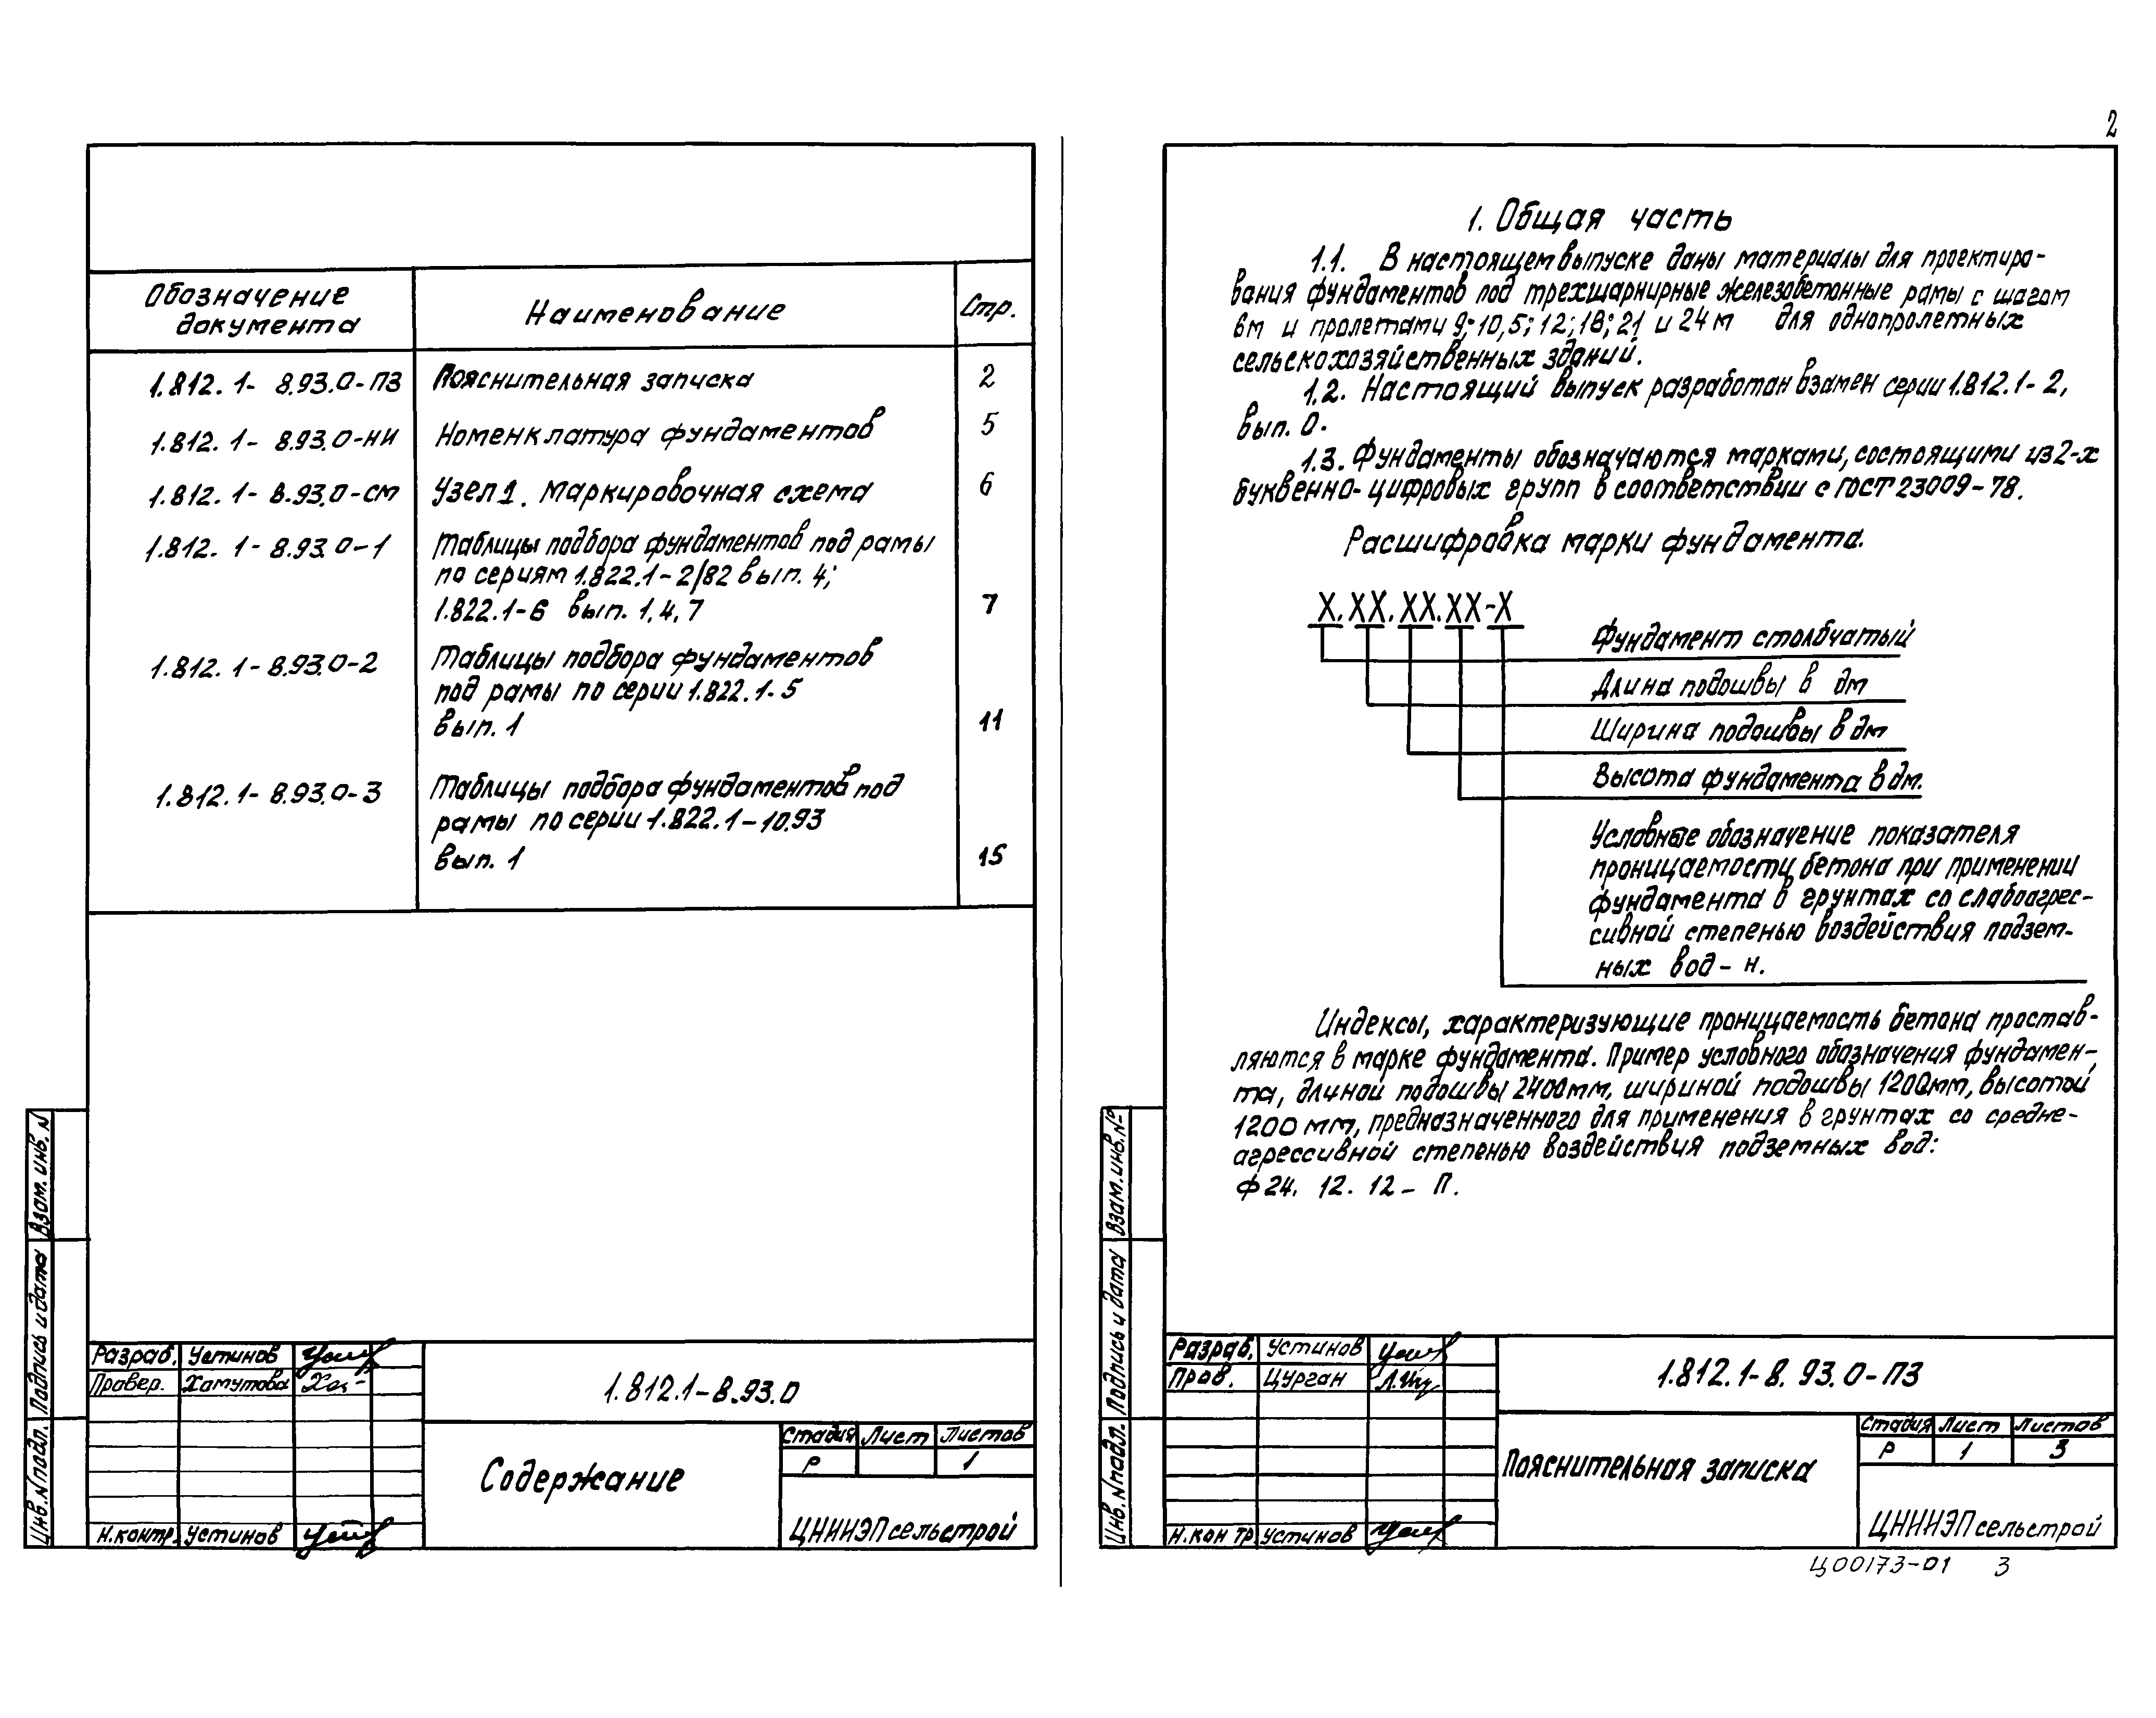 Обозначение документа	Наименование	Стр.
1.812.1-8.93.0-ПЗ	Пояснительная записка	2
1.812.1-8.93.0-НИ	Номенклатура фундаментов	5
1.812.1-8.93.0-СМ	Узел 1. Маркировочная схема	6
1.812.1-8.93.0-1	Таблицы подбора фундаментов под рамы
по сериям 1.822.1-2/82 вып. 4;
1.822.1-6 вып. 1,4,7	7
1.812.1-8.93.0-2	Таблицы подбора фундаментов
под рамы по серии 1.822.1-5
вып. 1	11
1.812.1-8.93.0-3	Таблицы подбора фундаментов под
рамы по серии 1.822.1-10.93
вып. 1	15
Взам. инв. N
Подпись и дата
Инв. N подл.
Разраб. Устинов
Провер. Хамутова
Н.контр. Устинов
1.812.1-8.93.0
Содержание
Стадия Лист Листов
Р 1
ЦНИИЭПсельстрой
2
1. Общая часть
1.1. В настоящем выпуске даны материалы для проектиро-
вания фундаментов под трехшарнирные железобетонные рамы с шагом
6м и пролетами 9; 10,5; 12; 18; 21 и 24м для однопролетных
сельскохозяйственных зданий.
1.2. Настоящий выпуск разработан взамен серии 1.812.1-2,
вып. 0.
1.3. Фундаменты обозначаются марками, состоящими из 2-х
буквенно-цифровых групп в соответствии с ГОСТ 23009-78.
Расшифровка марки фундамента.
Х.ХХ.ХХ.ХХ-Х
Фундамент столбчатый
Длина подошвы в дм
Ширина подошвы в дм
Высота фундамента в дм.
Условные обозначение показателя
проницаемости бетона при применении
фундамента в грунтах со слабоагрес-
сивной степенью воздействия подзем-
ных вод - н.
Индексы, характеризующие проницаемость бетона простав-
ляются в марке фундамента. Пример условного обозначения фундамен-
та, длиной подошвы 2400мм, шириной подошвы 1200мм, высотой
1200 мм, предназначенного для применения в грунтах со средне-
агрессивной степенью воздействия подземных вод:
Ф 24. 12. 12 - П.
Взам. инв. №
Подпись и дата
Инв. N подл.
Разраб. Устинов
Пров. Цурган
Н.контр Устинов
1.812.1-8.93.0-ПЗ
Пояснительная записка
Стадия Лист Листов
Р 1 3
ЦНИИЭПсельстрой
Ц00173-01 3